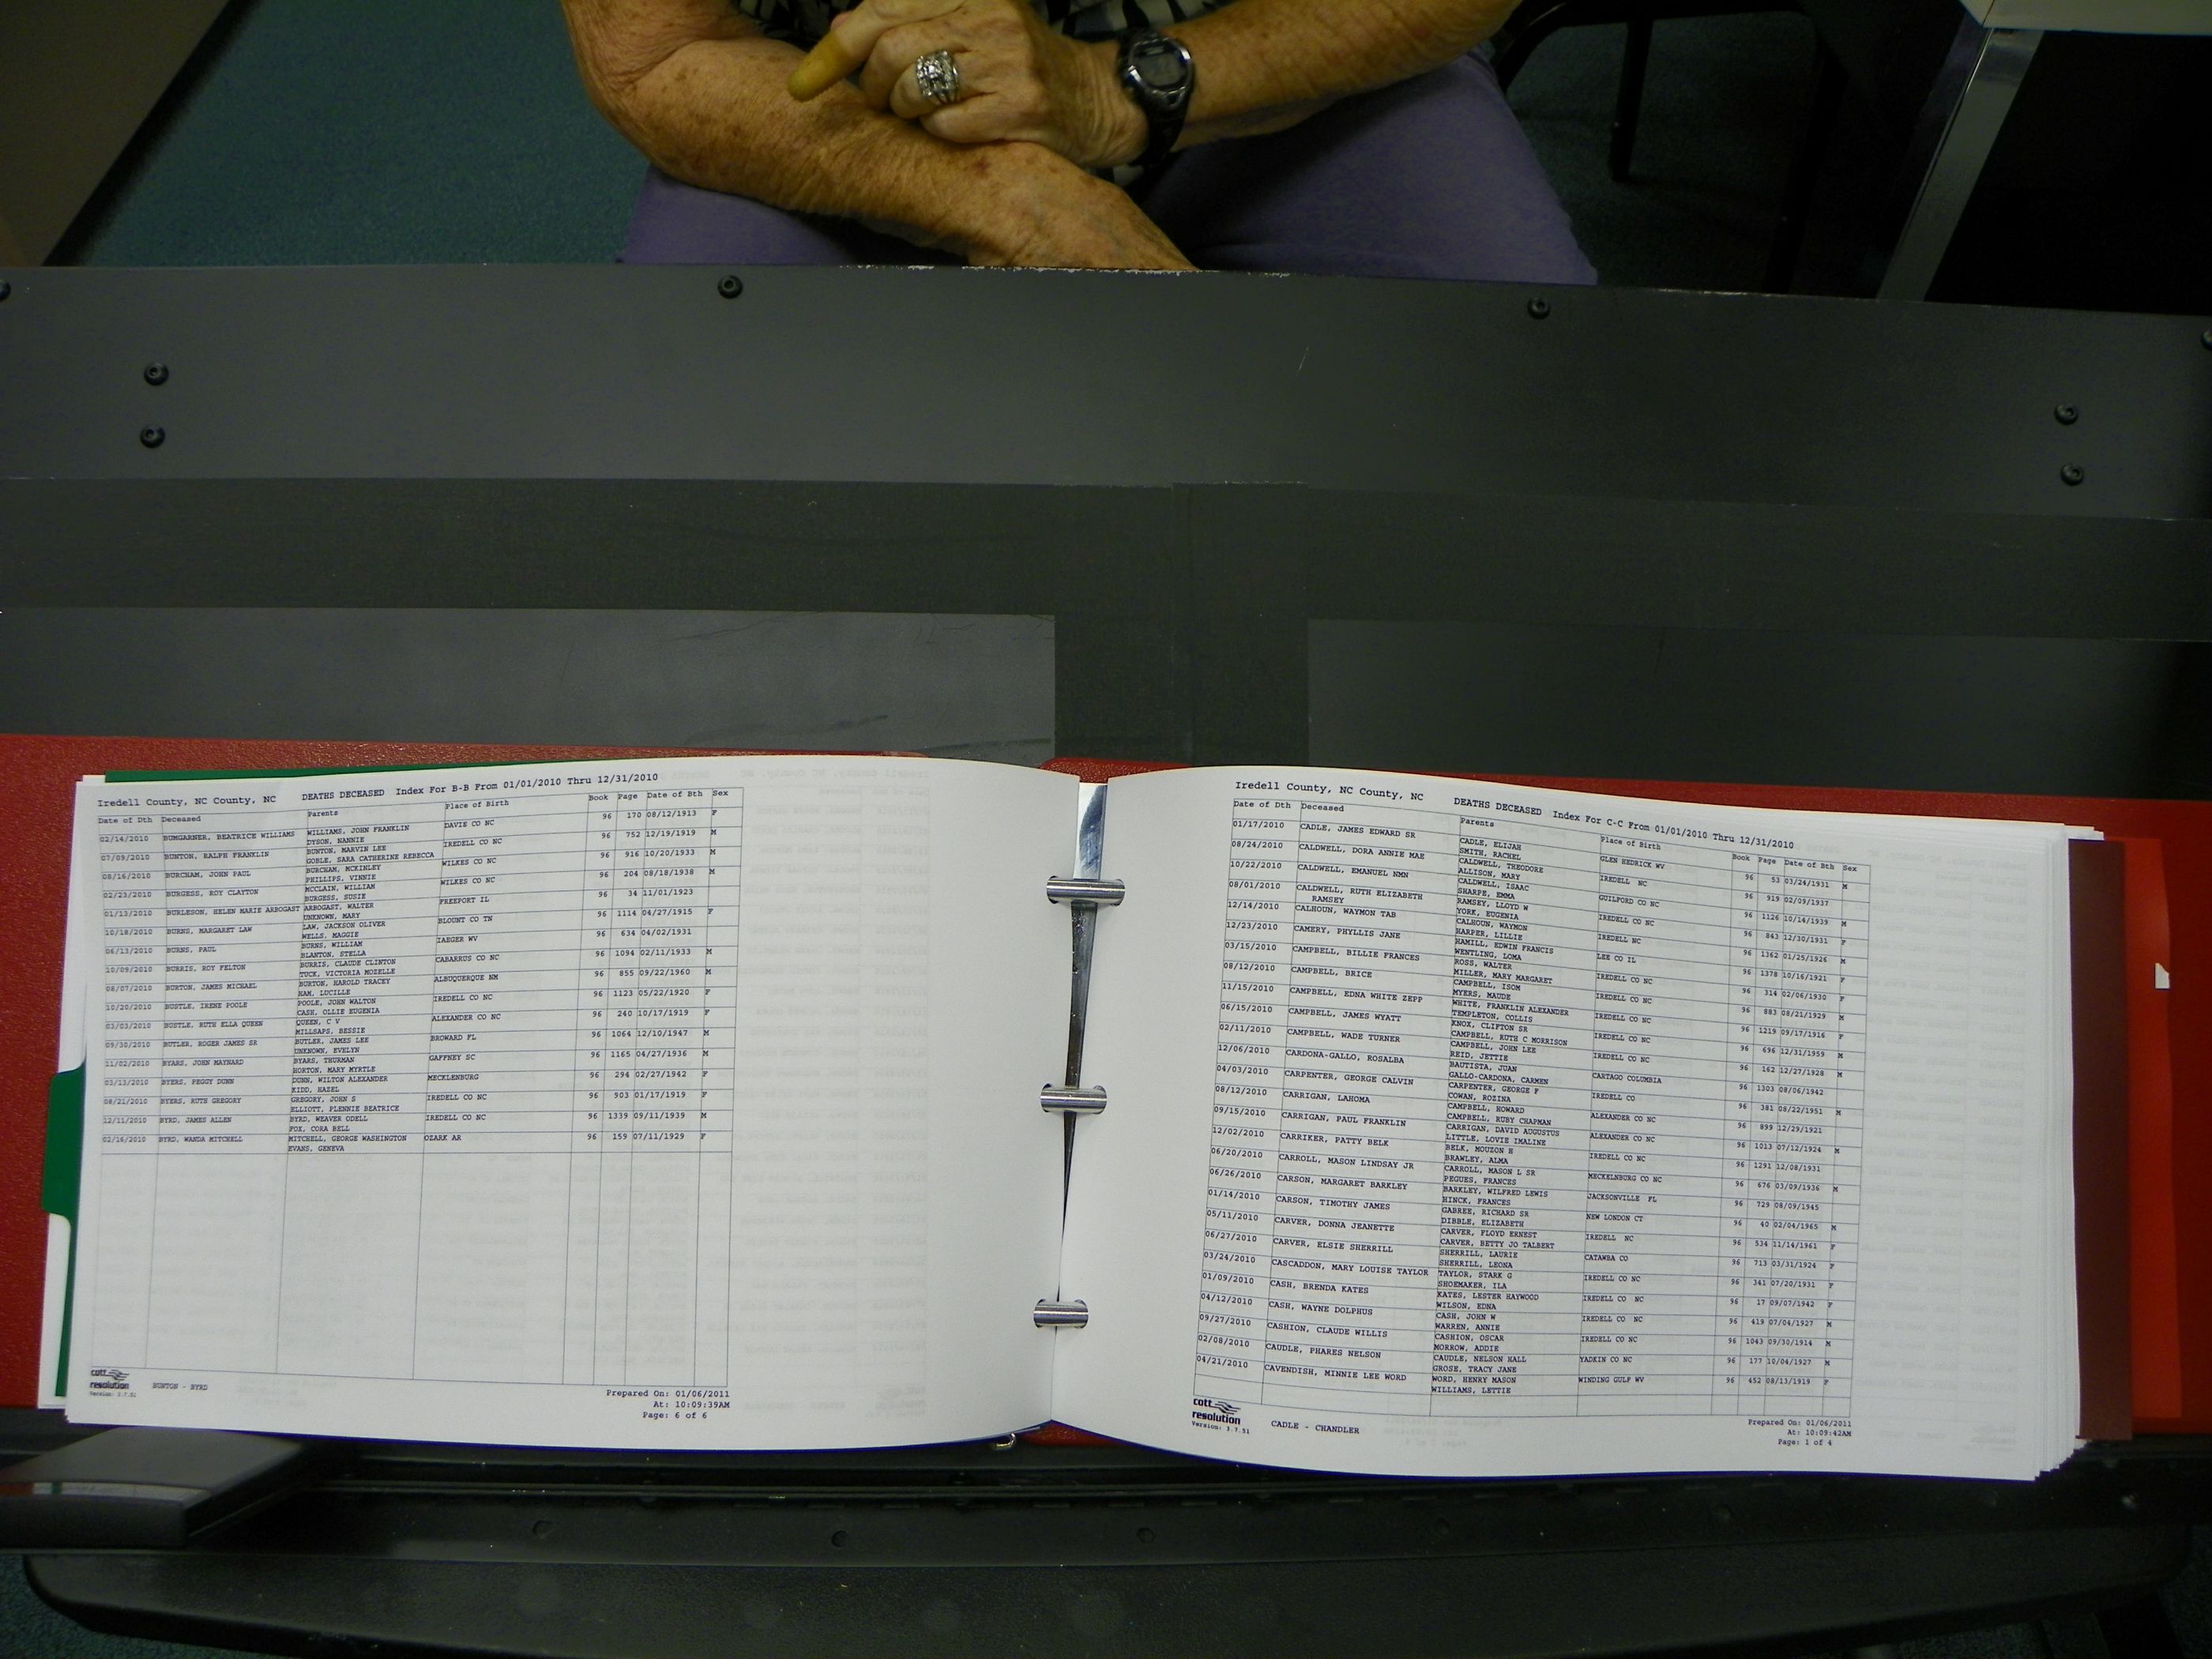 Iredell County, NC County, NC DEATHS DECEASED Index For B-B From 01/01/2010 Thru 12/31/2010
Date of Dth Deceased Parents Place of Birth Book Page Date of Bth Sex
02/14/2010 BUMGARNER, BEATRICE WILLIAMS WILLIAMS, JOHN FRANKLIN DAVIE CO NC 96 170 08/12/1913 F
DYSON, NANNIE
07/09/2010 BUNTON, RALPH FRANKLIN BUNTON, MARVIN LEE IREDELL CO NC 96 752 12/19/1919 M
GOBLE, SARA CATHERINE REBECCA
08/16/2010 BURCHAM, JOHN PAUL BURCHAM, MCKINLEY WILKES CO NC 96 916 10/20/1933 M
PHILLIPS, VINNIE
02/23/2010 BURGESS, ROY CLAYTON MCCLAIN, WILLIAM WILKES CO NC 96 204 08/18/1938 M
BURGESS, SUSIE
01/13/2010 BURLESON, HELEN MARIE ARBOGAST ARBOGAST, WALTER FREEPORT IL 96 34 11/01/1923
UNKNOWN, MARY
10/18/2010 BURNS, MARGARET LAW LAW, JACKSON OLIVER BLOUNT CO TN 96 1114 04/27/1915 F
WELLS, MAGGIE
06/13/2010 BURNS, PAUL BURNS, WILLIAM IAEGER WV 96 634 04/02/1931
BLANTON, STELLA
10/09/2010 BURRIS, ROY FELTON BURRIS, CLAUDE CLINTON CABARRUS CO NC 96 1094 02/11/1933 M
TUCK, VICTORIA MOZELLE
08/07/2010 BURTON, JAMES MICHAEL BURTON, HAROLD TRACEY ALBUQUERQUE NM 96 855 09/22/1960 M
HAM, LUCILLE
10/20/2010 BUSTLE, IRENE POOLE POOLE, JOHN WALTON IREDELL CO NC 96 1123 05/22/1920 F
CASH, OLLIE EUGENIA
03/03/2010 BUSTLE, RUTH ELLA QUEEN QUEEN, C V ALEXANDER CO NC 96 240 10/17/1919 F
MILLSAPS, BESSIE
09/30/2010 BUTLER, ROGER JAMES SR BUTLER, JAMES LEE BROWARD FL 96 1064 12/10/1947 M
UNKNOWN, EVELYN
11/02/2010 BYARS, JOHN MAYNARD BYARS, THURMAN GAFFNEY SC 96 1165 04/27/1936 M
HORTON, MARY MYRTLE
03/13/2010 BYERS, PEGGY DUNN DUNN, WILTON ALEXANDER MECKLENBURG 96 294 02/27/1942 F
KIDD, HAZEL
08/21/2010 BYERS, RUTH GREGORY GREGORY, JOHN S IREDELL CO NC 96 903 01/17/1919 F
ELLIOTT, PLENNIE BEATRICE
12/11/2010 BYRD, JAMES ALLEN BYRD, WEAVER ODELL IREDELL CO NC 96 1339 09/11/1939 M
FOX, CORA BELL
02/16/2010 BYRD, WANDA MITCHELL MITCHELL, GEORGE WASHINGTON OZARK AR 96 159 07/11/1929 F
EVANS, GENEVA
cott
resolution
Version: 3.7.51
BUNTON - BYRD
Prepared On: 01/06/2011
At: 10:09:39AM
Page: 6 of 6
Iredell County, NC County, NC DEATHS DECEASED Index For C-C From 01/01/2010 Thru 12/31/2010
Date of Dth Deceased Parents Place of Birth Book Page Date of Bth Sex
01/17/2010 CADLE, JAMES EDWARD SR CADLE, ELIJAH GLEN HEDRICK WV 96 53 03/24/1931 M
SMITH, RACHEL
08/24/2010 CALDWELL, DORA ANNIE MAE CALDWELL, THEODORE IREDELL NC 96 919 02/09/1937
ALLISON, MARY
10/22/2010 CALDWELL, EMANUEL NMN CALDWELL, ISAAC GUILFORD CO NC 96 1126 10/14/1939 M
SHARPE, EMMA
08/01/2010 CALDWELL, RUTH ELIZABETH RAMSEY, LLOYD W IREDELL CO NC 96 843 12/30/1931 F
RAMSEY YORK, EUGENIA
12/14/2010 CALHOUN, WAYMON TAB CALHOUN, WAYMON IREDELL NC 96 1362 01/25/1926 M
HARPER, LILLIE
12/23/2010 CAMERY, PHYLLIS JANE HAMILL, EDWIN FRANCIS LEE CO IL 96 1378 10/16/1921 F
WENTLING, LOMA
03/15/2010 CAMPBELL, BILLIE FRANCES ROSS, WALTER IREDELL CO NC 96 314 02/06/1930 F
MILLER, MARY MARGARET
08/12/2010 CAMPBELL, BRICE CAMPBELL, ISOM IREDELL CO NC 96 883 08/21/1929 M
MYERS, MAUDE
11/15/2010 CAMPBELL, EDNA WHITE ZEPP WHITE, FRANKLIN ALEXANDER IREDELL CO NC 96 1219 09/17/1916 F
TEMPLETON, COLLIS
06/15/2010 CAMPBELL, JAMES WYATT KNOX, CLIFTON SR IREDELL CO NC 96 696 12/31/1959 M
CAMPBELL, RUTH C MORRISON
02/11/2010 CAMPBELL, WADE TURNER CAMPBELL, JOHN LEE IREDELL CO NC 96 162 12/27/1928 M
REID, JETTIE
12/06/2010 CARDONA-GALLO, ROSALBA BAUTISTA, JUAN CARTAGO COLUMBIA 96 1303 08/06/1942
GALLO-CARDONA, CARMEN
04/03/2010 CARPENTER, GEORGE CALVIN CARPENTER, GEORGE F IREDELL CO 96 381 08/22/1951 M
COWAN, ROZINA
08/12/2010 CARRIGAN, LAHOMA CAMPBELL, HOWARD ALEXANDER CO NC 96 899 12/29/1921
CAMPBELL, RUBY CHAPMAN
09/15/2010 CARRIGAN, PAUL FRANKLIN CARRIGAN, DAVID AUGUSTUS ALEXANDER CO NC 96 1013 07/12/1924 M
LITTLE, LOVIE IMALINE
12/02/2010 CARRIKER, PATTY BELK BELK, MOUZON H IREDELL CO NC 96 1291 12/08/1931
BRAWLEY, ALMA
06/20/2010 CARROLL, MASON LINDSAY JR CARROLL, MASON L SR MECKLENBURG CO NC 96 676 03/09/1936 M
PEGUES, FRANCES
06/26/2010 CARSON, MARGARET BARKLEY BARKLEY, WILFRED LEWIS JACKSONVILLE FL 96 729 08/09/1945
HINCK, FRANCES
01/14/2010 CARSON, TIMOTHY JAMES GABREE, RICHARD SR NEW LONDON CT 96 40 02/04/1965 M
DIBBLE, ELIZABETH
05/11/2010 CARVER, DONNA JEANETTE CARVER, FLOYD ERNEST IREDELL NC 96 534 11/14/1961 F
CARVER, BETTY JO TALBERT
06/27/2010 CARVER, ELSIE SHERRILL SHERRILL, LAURIE CATAWBA CO 96 713 03/31/1924 F
SHERRILL, LEONA
03/24/2010 CASCADDON, MARY LOUISE TAYLOR TAYLOR, STARK G IREDELL CO NC 96 341 07/20/1931 F
SHOEMAKER, ILA
01/09/2010 CASH, BRENDA KATES KATES, LESTER HAYWOOD IREDELL CO NC 96 17 09/07/1942 F
WILSON, EDNA
04/12/2010 CASH, WAYNE DOLPHUS CASH, JOHN W IREDELL CO NC 96 419 07/04/1927 M
WARREN, ANNIE
09/27/2010 CASHION, CLAUDE WILLIS CASHION, OSCAR IREDELL CO NC 96 1043 09/30/1914 M
MORROW, ADDIE
02/08/2010 CAUDLE, PHARES NELSON CAUDLE, NELSON HALL YADKIN CO NC 96 177 10/04/1927 M
GROSE, TRACY JANE
04/21/2010 CAVENDISH, MINNIE LEE WORD WORD, HENRY MASON WINDING GULF WV 96 452 08/13/1919 F
WILLIAMS, LETTIE
cott
resolution
Version: 3.7.51
CADLE - CHANDLER
Prepared On: 01/06/2011
At: 10:09:42AM
Page: 1 of 4